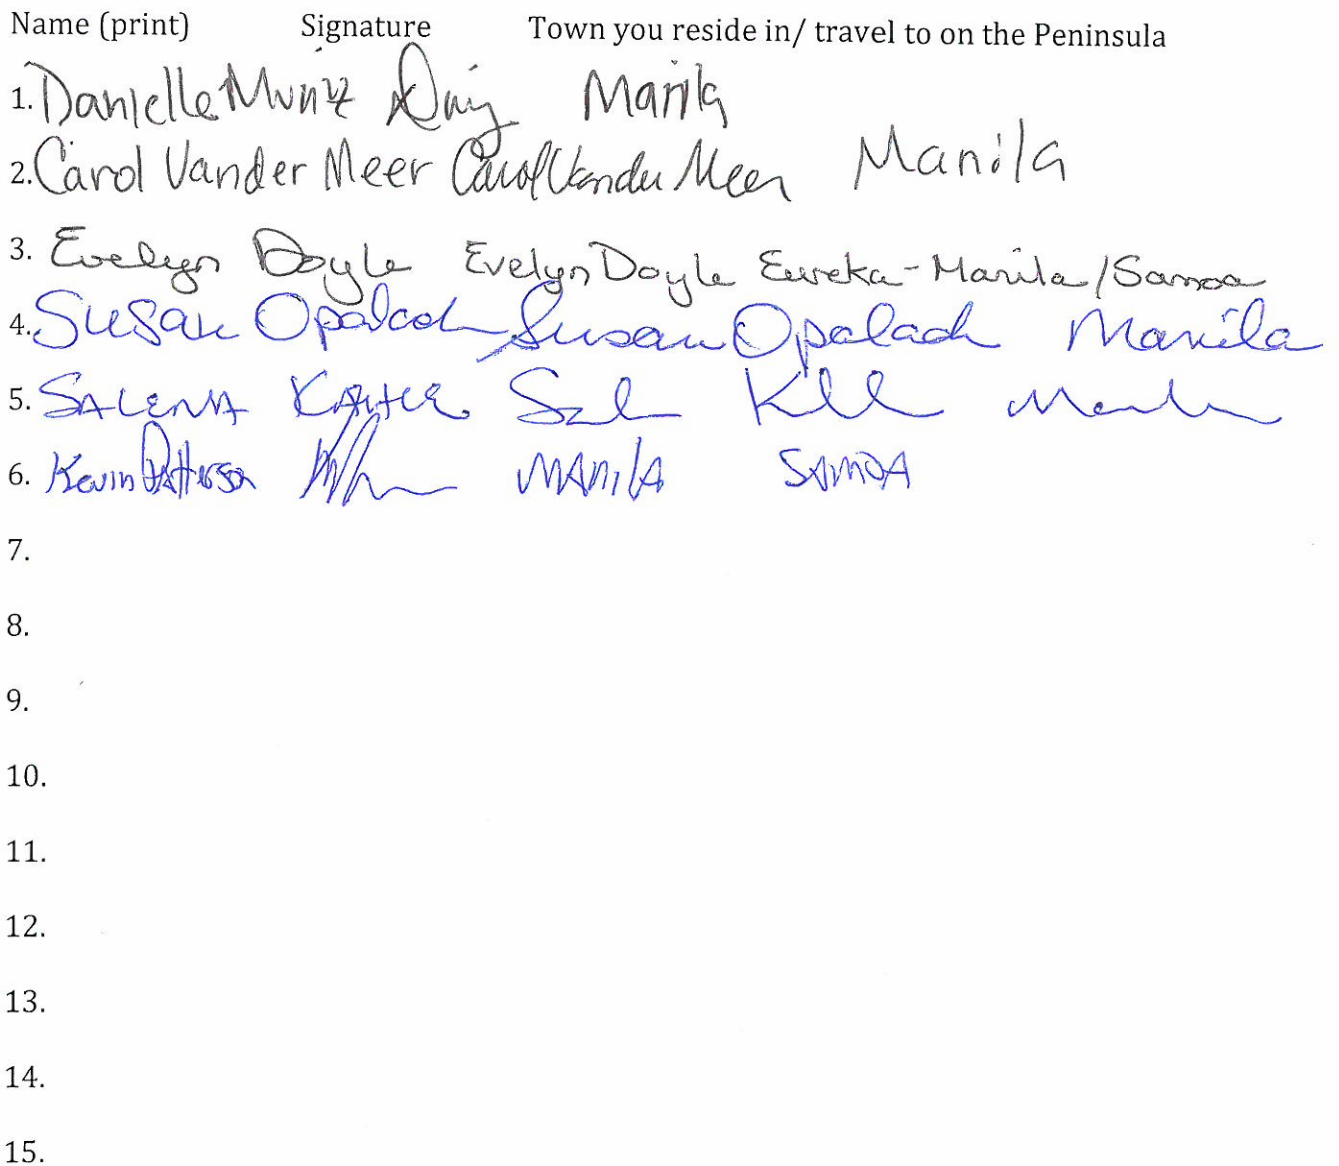 Name (print) Signature Town you reside in/ travel to on the Peninsula
1. Danielle Muniz Manila
2. Carol Vander Meer Carol Vander Meer Manila
3. Evelyn Doyle Evelyn Doyle Eureka-Manila/Samoa
4. Susan Opalach Susan Opalach Manila
5. SALENA
6. Kevin Patterson MANilA SAMOA
7.
8.
9.
10.
11.
12.
13.
14.
15.